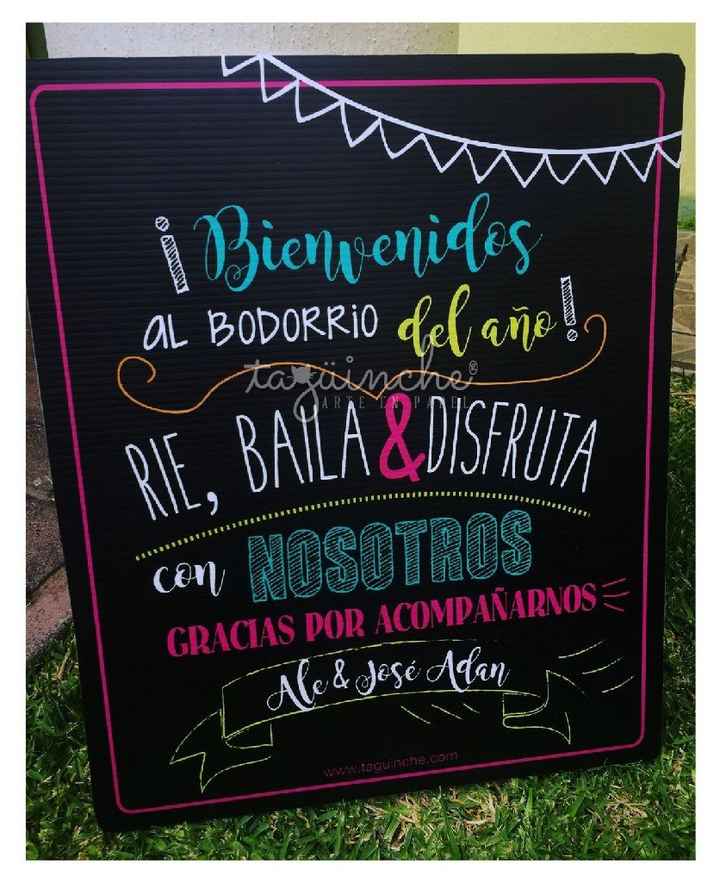 ¡Bienvenidos
AL BODORRIO del año!
tagüinche®
ARTE EN PAPEL
RIE, BAILA & DISFRUTA
con NOSOTROS
GRACIAS POR ACOMPAÑARNOS
Ale & José Adan
www.taguinche.com